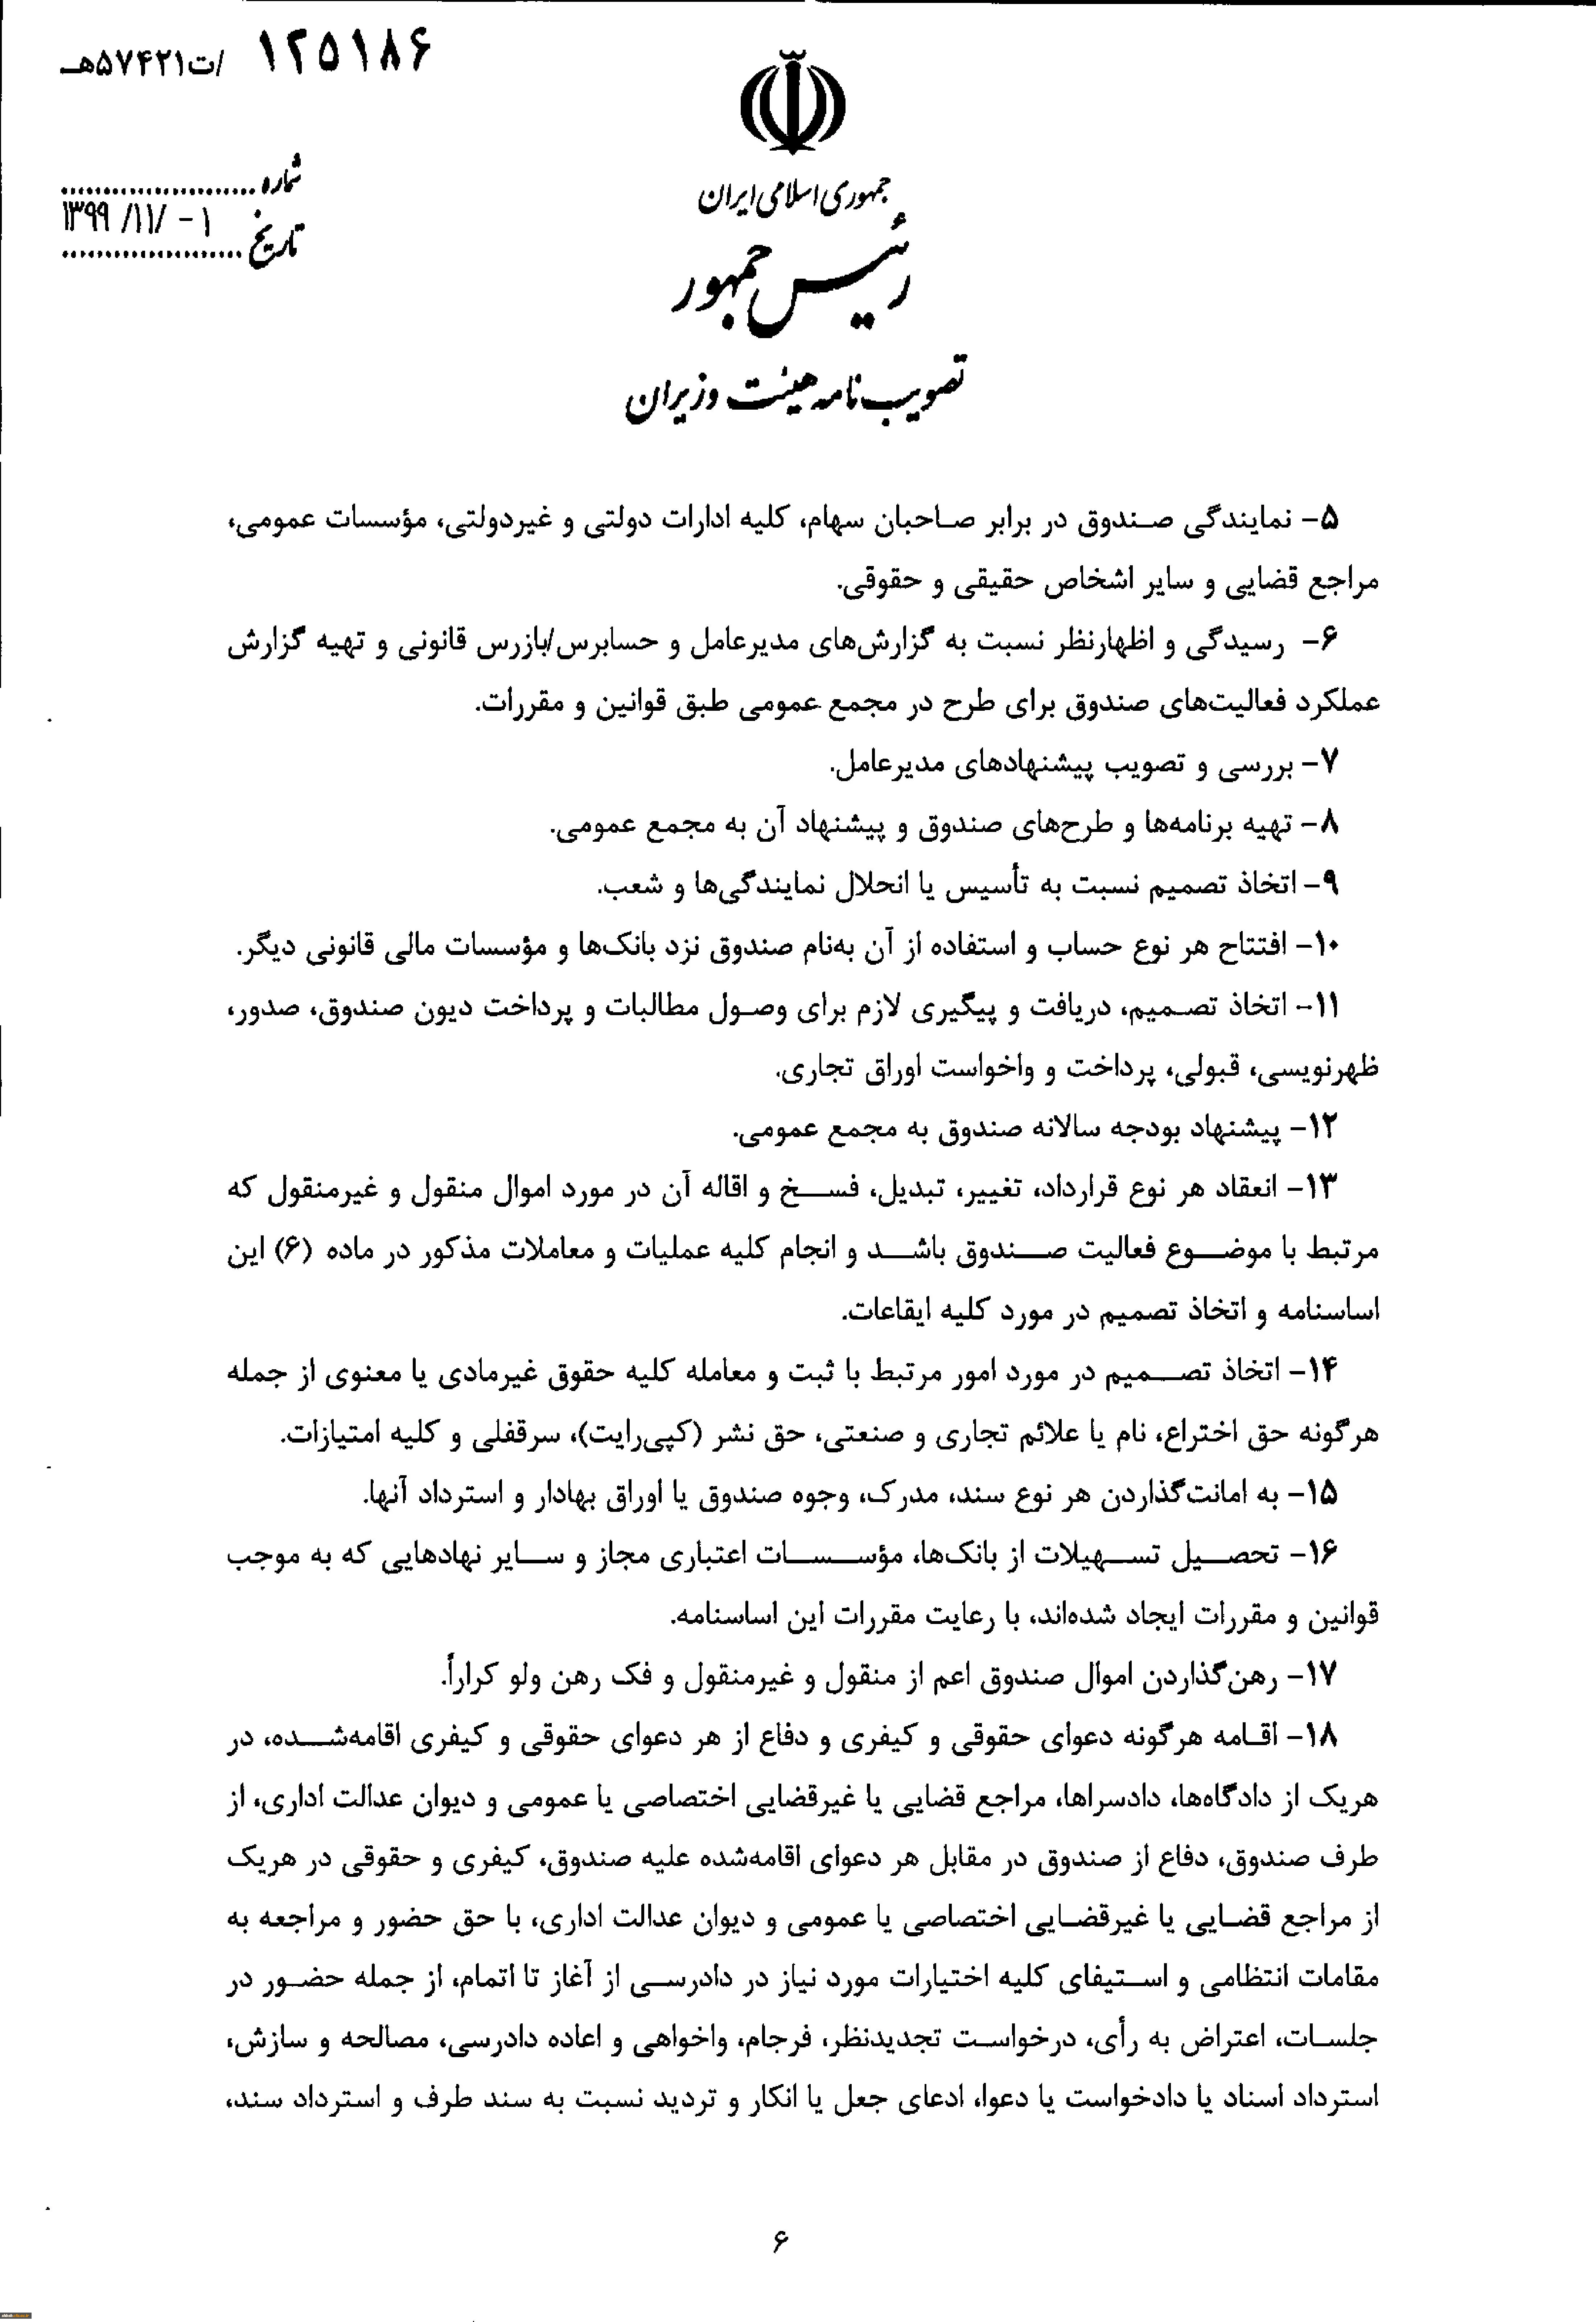 ۱۲۵۱۸۶ /ت۵۷۴۲۱هـ
شماره ......................
تاریخ ۱۳۹۹/۱۱/ -۱
جمهوری اسلامی ایران
رئیس جمهور
تصویب نامه هیئت وزیران
۵- نمایندگی صندوق در برابر صاحبان سهام، کلیه ادارات دولتی و غیردولتی، مؤسسات عمومی،
مراجع قضایی و سایر اشخاص حقیقی و حقوقی.
۶- رسیدگی و اظهارنظر نسبت به گزارش‌های مدیرعامل و حسابرس/بازرس قانونی و تهیه گزارش
عملکرد فعالیت‌های صندوق برای طرح در مجمع عمومی طبق قوانین و مقررات.
۷- بررسی و تصویب پیشنهادهای مدیرعامل.
۸- تهیه برنامه‌ها و طرح‌های صندوق و پیشنهاد آن به مجمع عمومی.
۹- اتخاذ تصمیم نسبت به تأسیس یا انحلال نمایندگی‌ها و شعب.
۱۰- افتتاح هر نوع حساب و استفاده از آن به‌نام صندوق نزد بانک‌ها و مؤسسات مالی قانونی دیگر.
۱۱- اتخاذ تصمیم، دریافت و پیگیری لازم برای وصول مطالبات و پرداخت دیون صندوق، صدور،
ظهرنویسی، قبولی، پرداخت و واخواست اوراق تجاری.
۱۲- پیشنهاد بودجه سالانه صندوق به مجمع عمومی.
۱۳- انعقاد هر نوع قرارداد، تغییر، تبدیل، فسخ و اقاله آن در مورد اموال منقول و غیرمنقول که
مرتبط با موضوع فعالیت صندوق باشد و انجام کلیه عملیات و معاملات مذکور در ماده (۶) این
اساسنامه و اتخاذ تصمیم در مورد کلیه ایقاعات.
۱۴- اتخاذ تصمیم در مورد امور مرتبط با ثبت و معامله کلیه حقوق غیرمادی یا معنوی از جمله
هرگونه حق اختراع، نام یا علائم تجاری و صنعتی، حق نشر (کپی‌رایت)، سرقفلی و کلیه امتیازات.
۱۵- به امانت‌گذاردن هر نوع سند، مدرک، وجوه صندوق یا اوراق بهادار و استرداد آنها.
۱۶- تحصیل تسهیلات از بانک‌ها، مؤسسات اعتباری مجاز و سایر نهادهایی که به موجب
قوانین و مقررات ایجاد شده‌اند، با رعایت مقررات این اساسنامه.
۱۷- رهن‌گذاردن اموال صندوق اعم از منقول و غیرمنقول و فک رهن ولو کراراً.
۱۸- اقامه هرگونه دعوای حقوقی و کیفری و دفاع از هر دعوای حقوقی و کیفری اقامه‌شده، در
هریک از دادگاه‌ها، دادسراها، مراجع قضایی یا غیرقضایی اختصاصی یا عمومی و دیوان عدالت اداری، از
طرف صندوق، دفاع از صندوق در مقابل هر دعوای اقامه‌شده علیه صندوق، کیفری و حقوقی در هریک
از مراجع قضایی یا غیرقضایی اختصاصی یا عمومی و دیوان عدالت اداری، با حق حضور و مراجعه به
مقامات انتظامی و استیفای کلیه اختیارات مورد نیاز در دادرسی از آغاز تا اتمام، از جمله حضور در
جلسات، اعتراض به رأی، درخواست تجدیدنظر، فرجام، واخواهی و اعاده دادرسی، مصالحه و سازش،
استرداد اسناد یا دادخواست یا دعوا، ادعای جعل یا انکار و تردید نسبت به سند طرف و استرداد سند،
۶